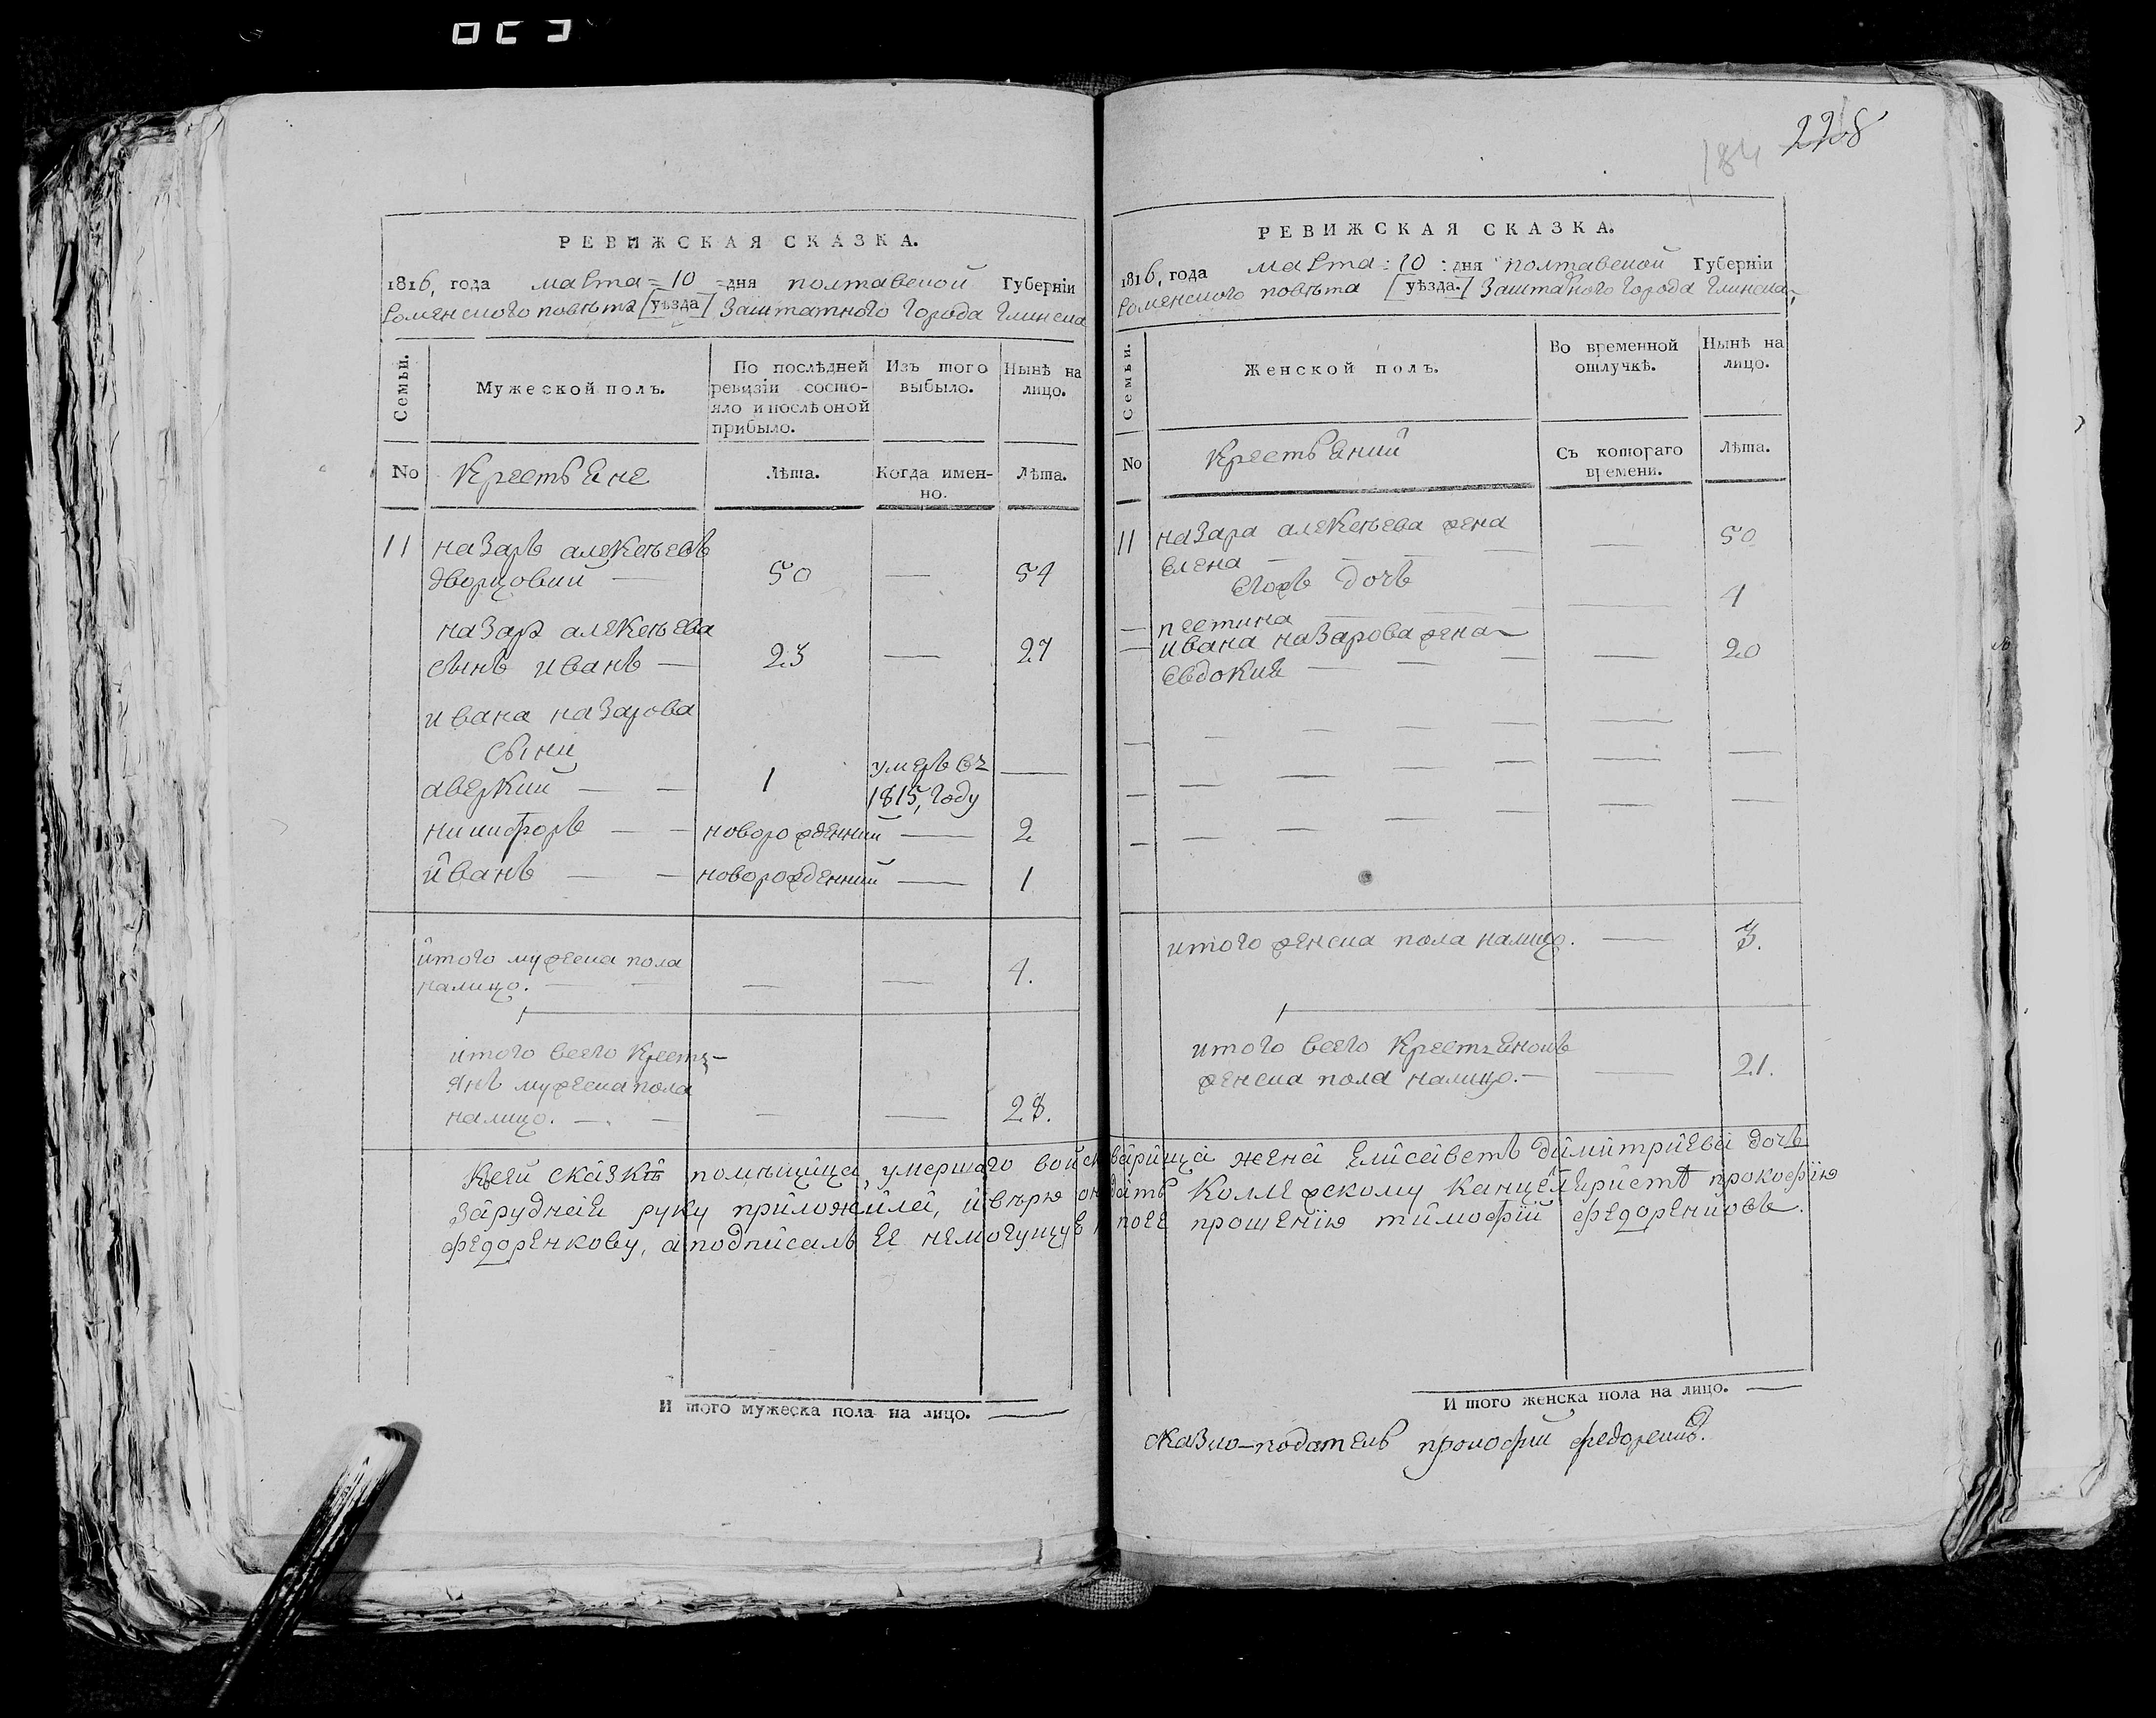 2208
184
РЕВИЖСКАЯ СКАЗКА.
1816, года марта = 10 = дня полтавской Губерніи
Роменского повѣта [уѣзда] Заштатного города Глинска
Семьи.
Мужеской полъ.
По послѣдней ревизіи состо-
яло и послѣ оной
прибыло.
Изъ того
выбыло.
Нынѣ на
лицо.
No
Крестьяне
Лѣта.
Когда имен-
но.
Лѣта.
11 назаръ алексѣевъ
дворцовий — 50 — 54
назара алексѣева
сынъ иванъ — 23 — 27
ивана назарова
сыни
аверкий — — 1 умеръ въ 1815, году —
никифоръ — — новорожденний — 2
иванъ — — новорожденний — 1
итого мужеска пола
налицо. — — — — 4.
итого всего крестъ-
янъ мужеска пола
налицо. — — — — 28.
И того мужеска пола на лицо. —
РЕВИЖСКАЯ СКАЗКА.
1816, года марта : 10 : дня полтавской Губерніи
Роменского повѣта [уѣзда.] Заштатного города Глинска,
Семьи.
Женской полъ.
Во временной
отлучкѣ.
Нынѣ на
лицо.
No
Крестьянки
Съ котораго
времени.
Лѣта.
11 назара алексѣева жена
елена — — — — — 50
Егожъ дочь
— — — — 4
— ивана назарова жена
Евдокия — — — — 20
итого женска пола налицо. — 3.
итого всего крестъянокъ
женска пола налицо. — — 21.
Ксей сказкѣ помѣщица, умершаго войск варища жена Елисаветъ димитриева дочь
Заруднаѧ руку приложила, и вѣрю он дать коллежскому канцеляристѣ прокофію
федоренкову, а подписалъ ее немогущуе ПоЕе прошенію тимофій федоренковъ.
И того женска пола на лицо. —
Сказко-подателъ прокофий федоренко.